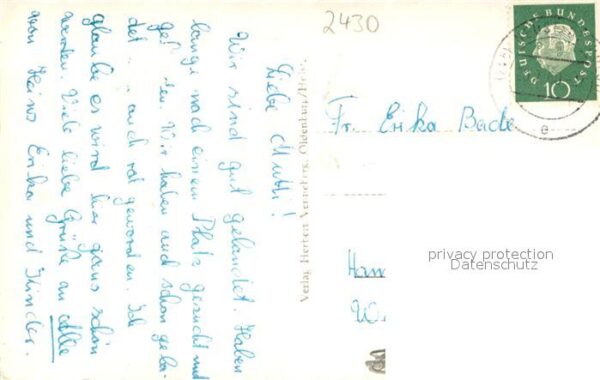 2430
Liebe Mutti!
Wir sind gut gelandet. Haben
lange nach einem Platz gesucht und
Wir haben auch schon geba-
det auch rot geworden. Ich
glaube es wird hier ganz schön
werden. Viele liebe Grüße an Alle
von Heinz Erika und Kinder.
Verlag Herbert Vernneberg, Oldenburg/Holst.
DEUTSCHE BUNDESPOST
10
e
Fr. Erika Bade
Han
privacy protection
Datenschutz